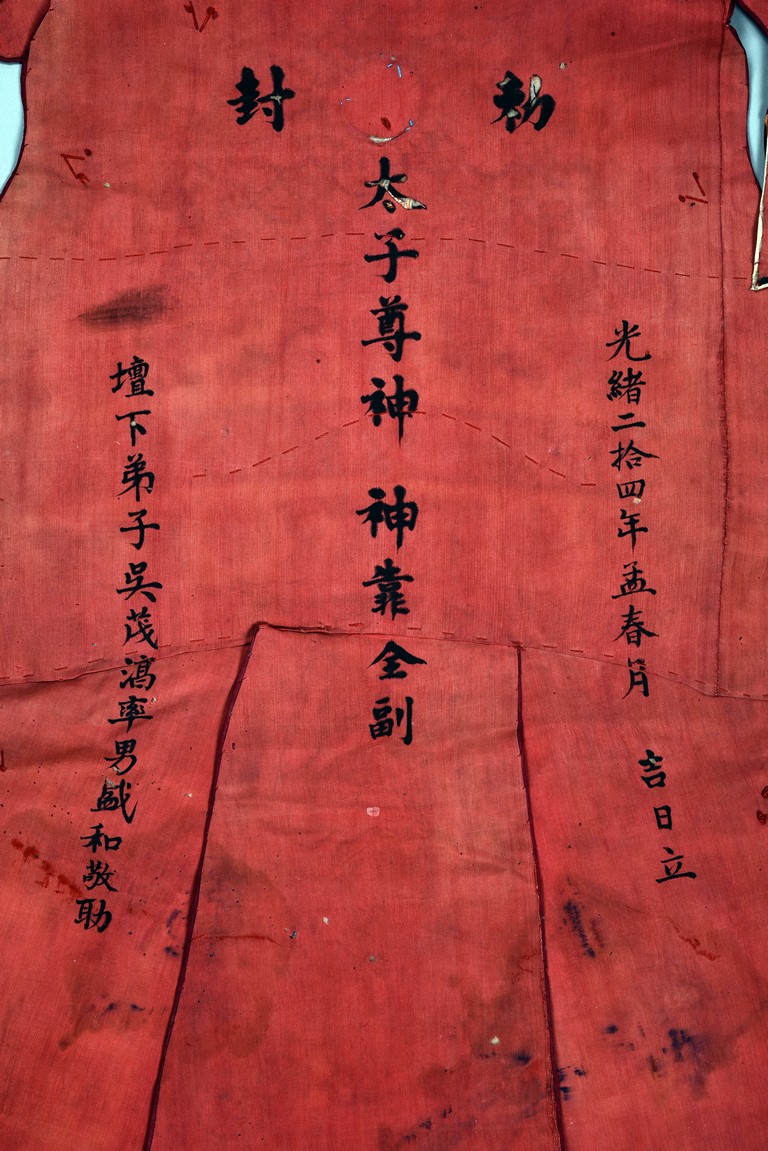 勅封
光緒二拾四年孟春月 吉日立
太子尊神 神靠全副
壇下弟子吳茂率男和敬助